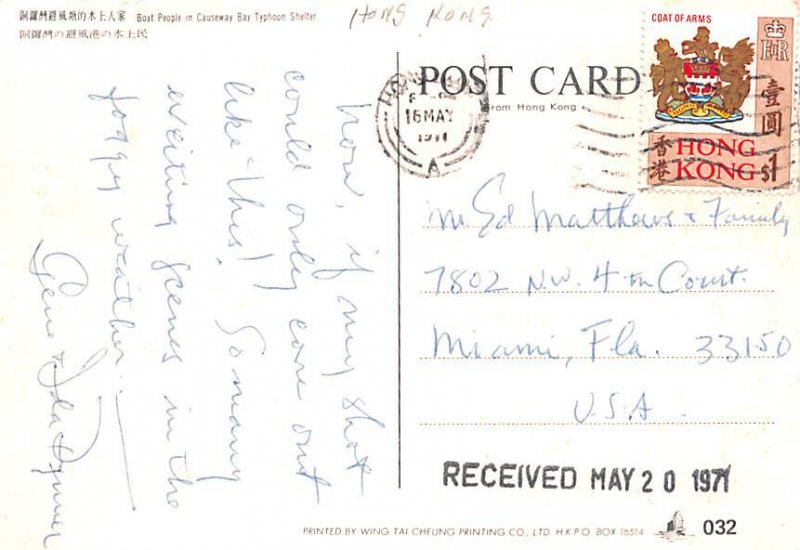 銅鑼灣避風塘的水上人家 Boat People in Causeway Bay Typhoon Shelter
銅鑼灣の避風港の水上民
HONG KONG
Now, if my shot
could only come out
like this! So many
exciting scenes in the
foggy weather.
Gene & Ida
POST CARD
from Hong Kong
16 MAY
1971
A
COAT OF ARMS
E II R
壹圓
香港
HONG
KONG $1
Mr Ed Matthews & Family
7802 N.W. 4th Court.
Miami, Fla. 33150
U.S.A.
RECEIVED MAY 20 1971
PRINTED BY WING TAI CHEUNG PRINTING CO., LTD. H.K.P.O. BOX 16514
032